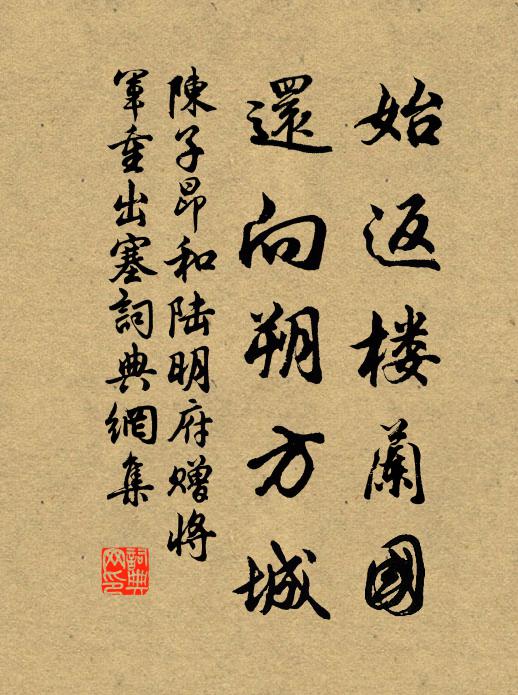 始返楼蘭國
還向朔方城
陳子昂和陆明府赠將
軍重出塞詞典網集
詞典
网印